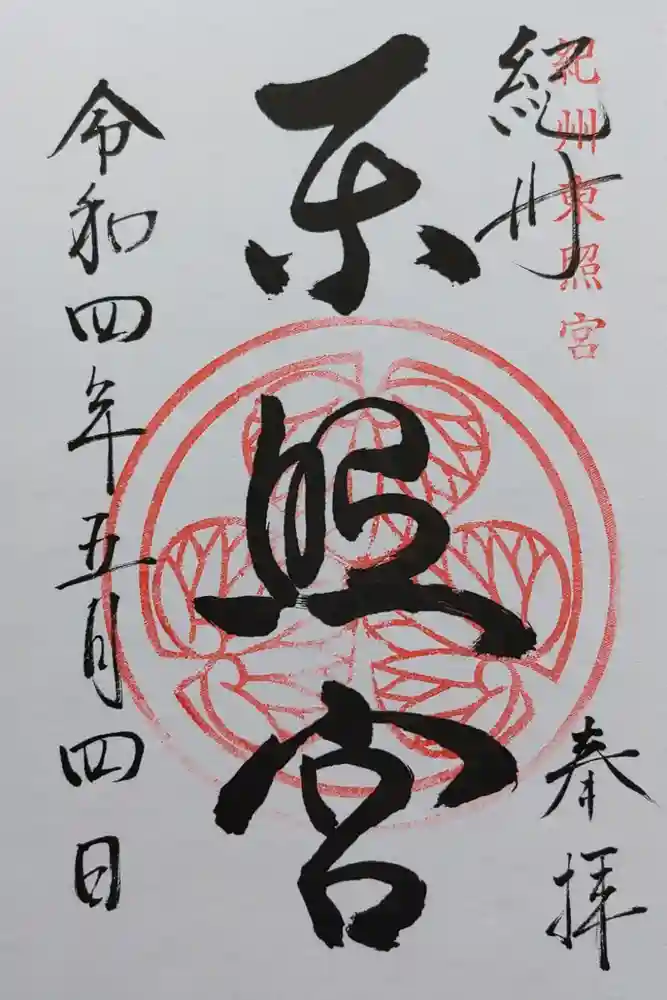 紀州東照宮
紀州
奉拝
東照宮
令和四年五月四日